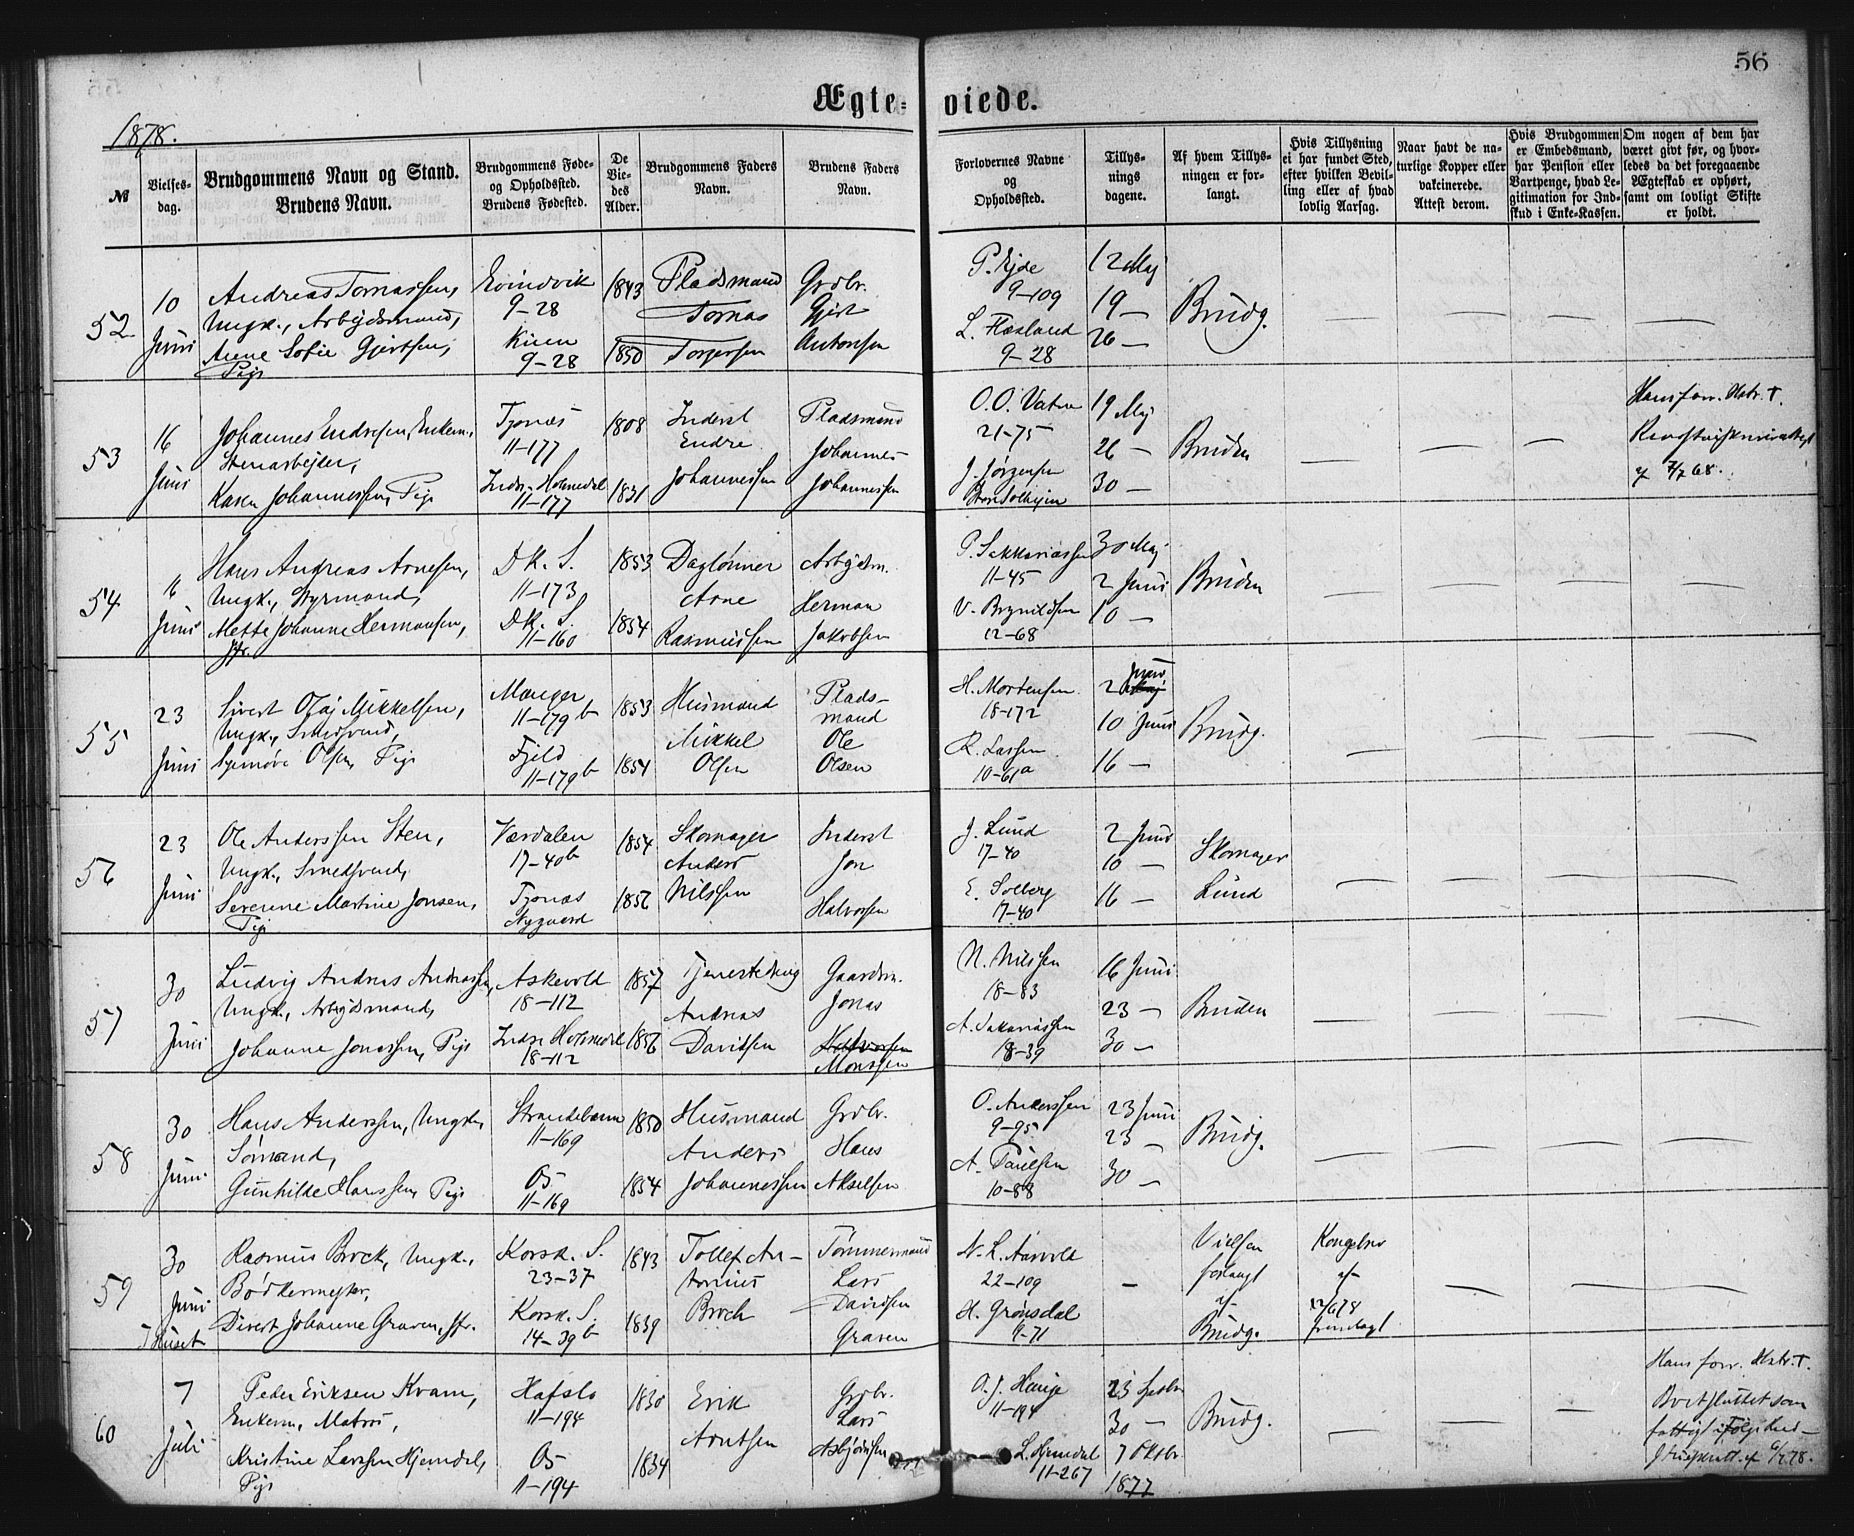 56
Ægte-viede.
1878.
№
Vielses-
dag.
Brudgommens Navn og Stand.
Brudens Navn.
Brudgommens Føde-
og Opholdssted.
Brudens Fødested.
De
Vie-
des
Alder.
Brudgommens Faders
Navn.
Brudens Faders
Navn.
Forlovernes Navne
og
Opholdssted.
Tillys-
nings
dagene.
Af hvem Tillys-
ningen er for-
langt.
Hvis Tillysning
ei har fundet Sted,
efter hvilken Bevil-
ling eller af hvad
lovlig Aarsag.
Naar havt de na-
turlige Kopper eller
vakcinerede.
Attest derom.
Hvis Brudgommen
er Embedsmand,
har Pension eller
Vartpenge, hvad Le-
gitimation for Ind-
skud i Enke-Kassen.
Om nogen af dem har
været givt før, og hvor-
ledes da det foregaaende
Ægteskab er ophørt,
samt om lovligt Skifte
er holdt.
52
10
Juni
Andreas Tomassen,
Ungk., Arbejdsmand,
Anne Sofie Gjertsen,
Pige
Evindvik
9-28
Kinn
9-28
1843
1850
Pladsmand
Tomas
Torgersen
Grdbr.
Gjert
Antonsen
P. Ejde
9-109
L. Flesland
9-28
12 Maj
19 —
26 —
Brudg.
53
16
Juni
Johannes Endresen, Enkem.,
Stenarbejder,
Karen Johannessen, Pige
Tysnæs
11-177
Indre Holmedal
11-177
1808
1831
Inderst
Endre
Johannessen
Pladsmand
Johannes
Johannessen
O. O. Vatne
21-75
J. Jørgensen
Store Solhejm
19 Maj
26 —
30 —
Bruden
Hans forr. Hstr. †.
7/7 68.
54
16
Juni
Hans Andreas Arnesen,
Ungk., Styrmand,
Mette Johanne Hermansen,
Jfr.
Dk. S.
11-173
Dk. S.
11-160
1853
1854
Daglønner
Arne
Rasmussen
Arbejdsm.
Herman
Jakobsen
P. Sakkariassen
11-45
V. Brynildsen
12-68
30 Maj
2 Juni
10 —
Bruden
55
23
Juni
Sivert Olaj Mikkelsen,
Ungk., Smedsvend,
Synnøve Olsen, Pige
Manger
11-179b
Fjeld
11-179b
1853
1854
Husmand
Mikkel
Olsen
Plads-
mand
Ole
Olsen
H. Mortensen
18-172
R. Lassen
10-61a
2 Juni
10 Juni
16 —
Brudg.
56
23
Juni
Ole Anderssen Sten,
Ungk., Smedsvend,
Severine Martine Jonsen,
Pige
Værdalen
17-40b
Tysnæs
Nygaard
1854
1856
Skomager
Anders
Nilssen
Inderst
Jon
Halvorsen
J. Lund
17-40
E. Solberg
17-40
2 Juni
10 —
16 —
Skomager
Lund
57
30
Juni
Ludvig Andreas Andreassen,
Ungk., Arbejdsmand,
Johanne Jonassen, Pige
Askevold
18-112
Indre Holmedal
18-112
1857
1856
Tjenestedreng
Andreas
Davidsen
Gaardm.
Jonas
Halvorsen
Monssen
N. Nilssen
18-83
A. Sakariassen
18-39
16 Juni
23 —
30 —
Bruden
58
30
Juni
Hans Anderssen, Ungk.,
Sømand,
Gunhilde Hanssen, Pige
Strandebarm
11-169
Os
11-169
1850
1854
Husmand
Anders
Johannessen
Grdbr.
Hans
Akselsen
O. Anderssen
9-95
A. Paulsen
10-88
23 Juni
23 —
30 —
Brudg.
59
30
Juni
I Huset
Rasmus Brock, Ungk.,
Bødkermester,
Divert Johanne Graven, Jfr.
Korsk. S.
23-37
Korsk. S.
14-39b
1843
1839
Tollef An-
tonius
Broch
Tømmermand
Lars
Davidsen
Graven
N. L. Aarvold
22-109
H. Grønsdal
9-71
—
Vielsen
forlangt
af
Brudg.
Kongebrev
af
12/6 78
fremlagt
60
7
Juli
Peder Eriksen Kvam,
Enkem., Matros,
Kristine Larssen Hjemdal,
Pige
Hafslo
11-194
Os
11-194
1830
1834
Erik
Arntsen
Grdbr.
Lars
Asbjørnsen
O. J. Hauge
11-194
L. Hjemdal
11-267
23 Septbr
30 —
7 Oktbr
1877
Brudg.
Hans forr. Hstr. †.
Boet sluttet som
fattigt ifølge Sked-
6/7 78.